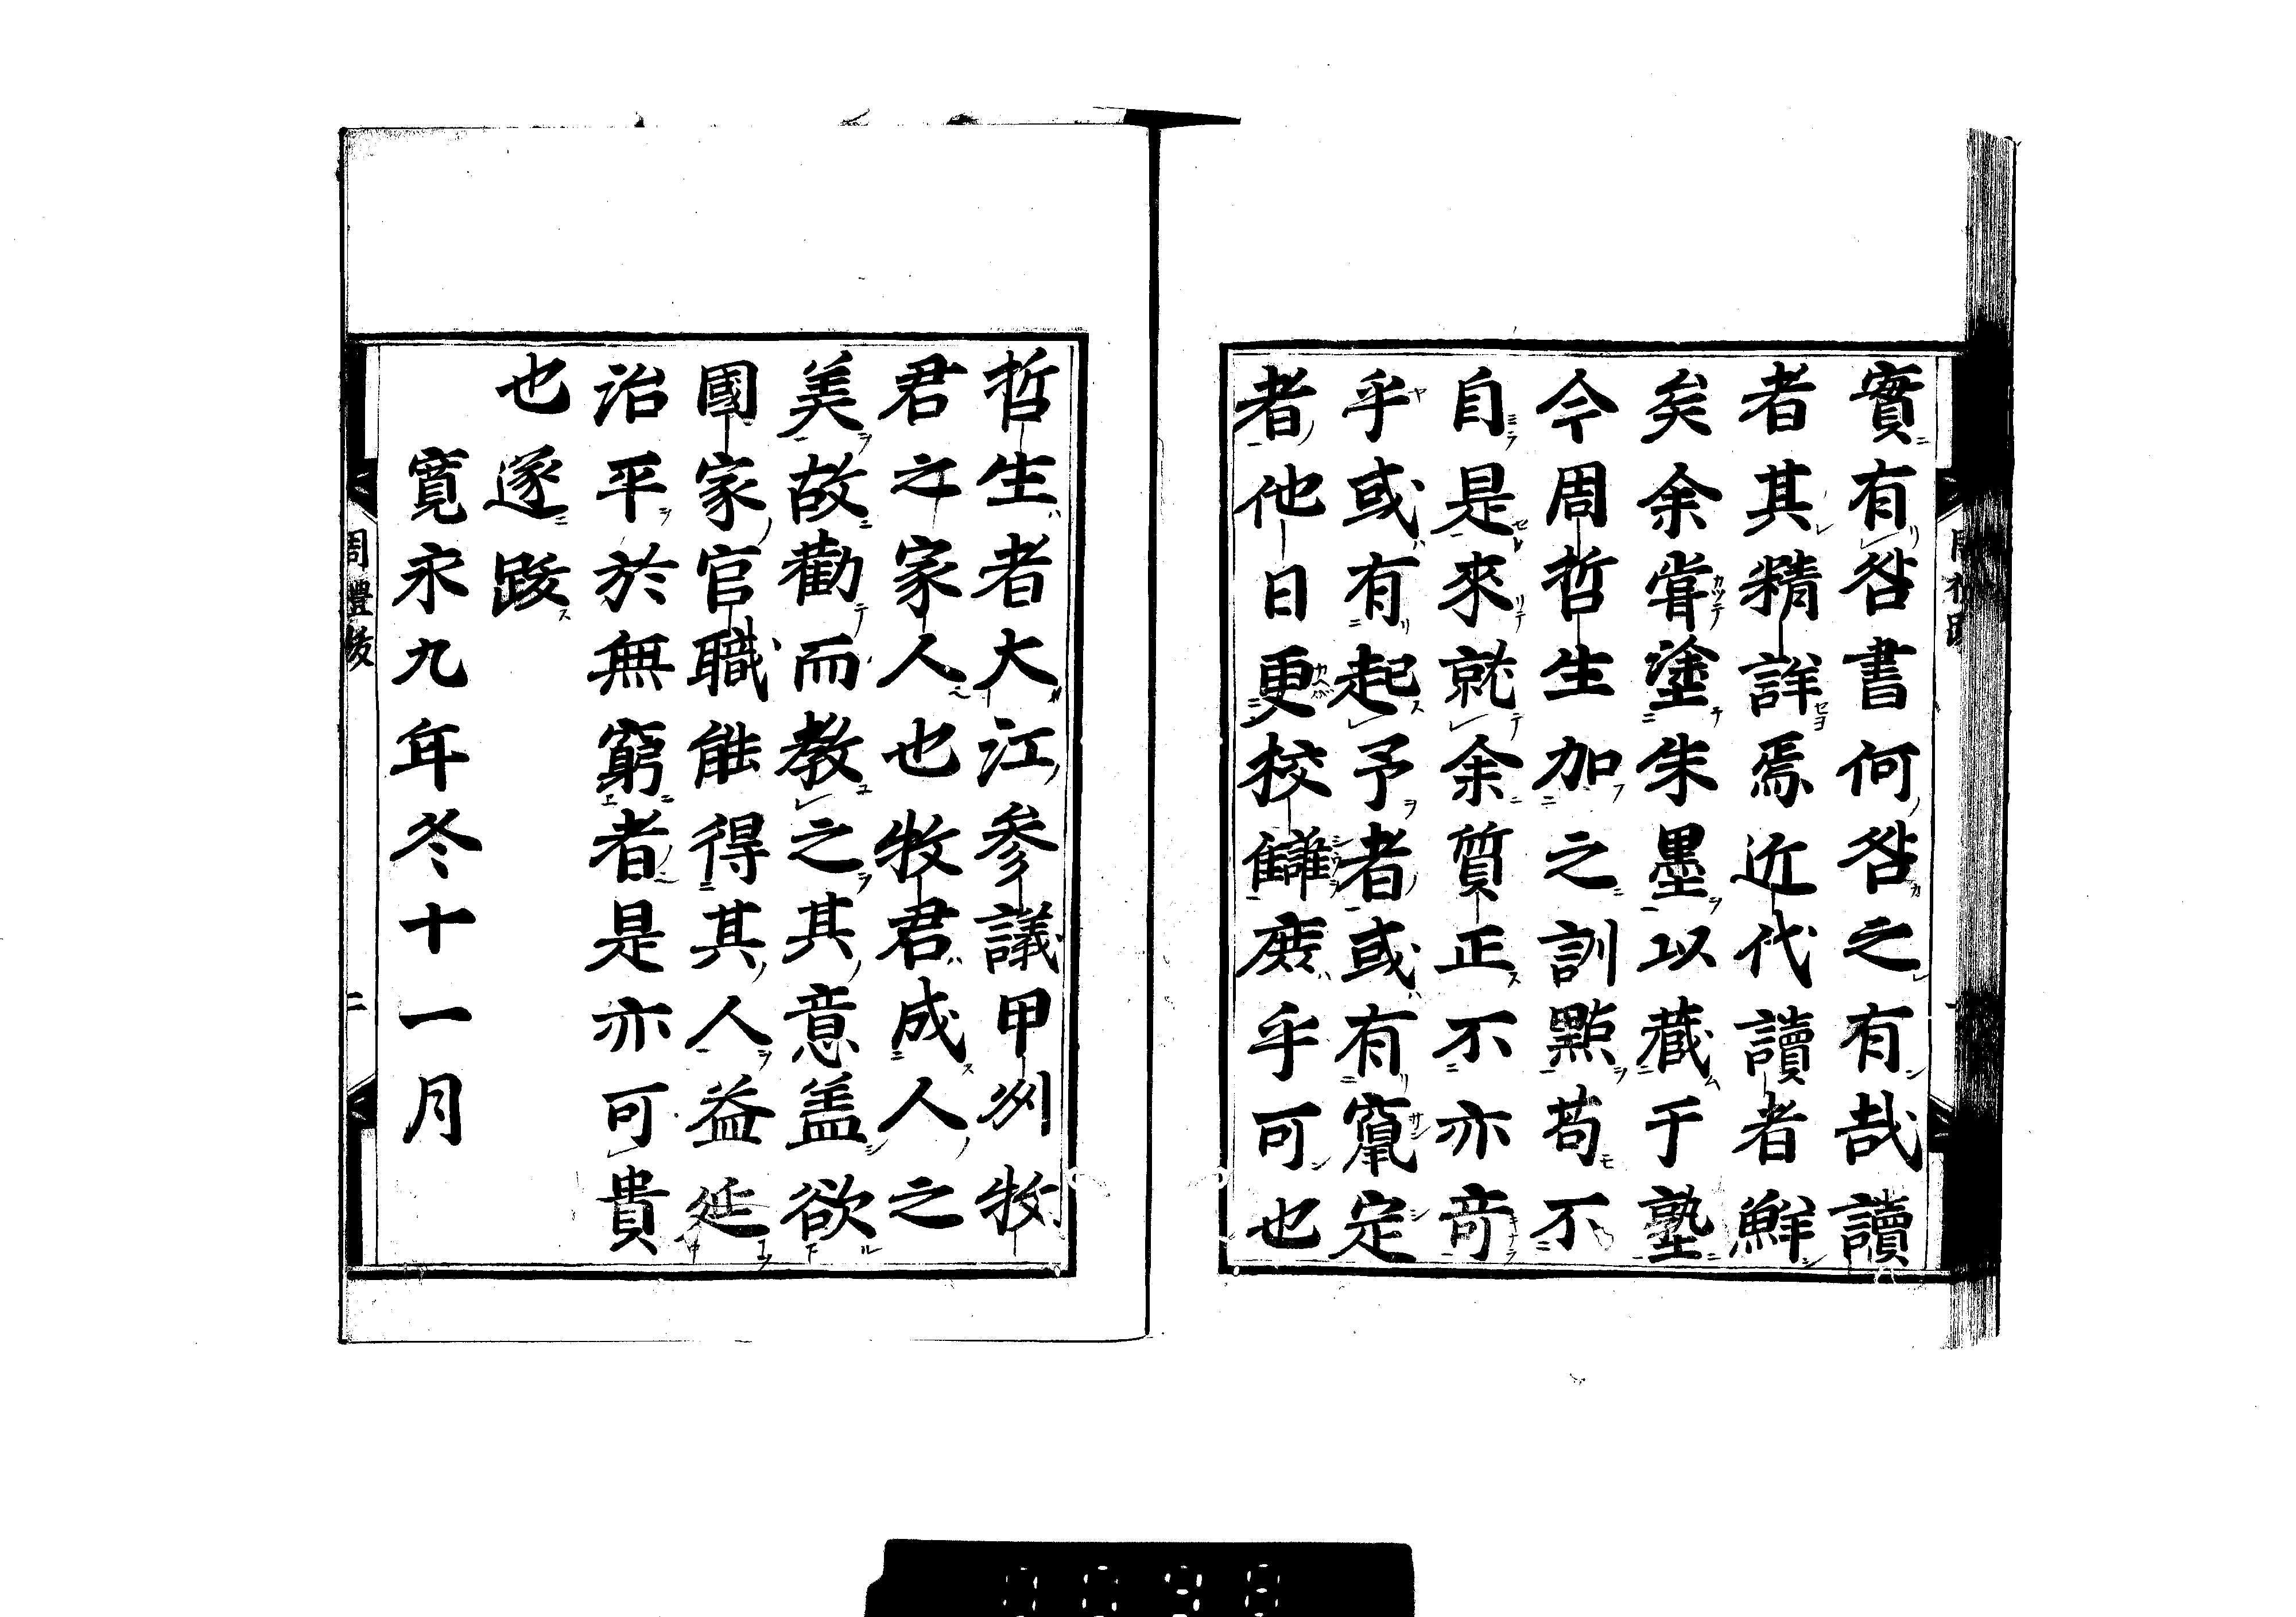 實有咎書何咎之有哉讀
者其精詳焉近代讀者鮮
矣余甞塗朱墨以藏于塾
今周哲生加之訓點苟不
自是來就余質正不亦竒
乎或有起予者或有竄定
者他日更校讎庶乎可也
哲生者大江參議甲州牧
君之家人也牧君成人之
美故勸而教之其意盖欲
國家官職能得其人益延
治平於無窮者是亦可貴
也遂跋
寛永九年冬十一月
周禮後
二